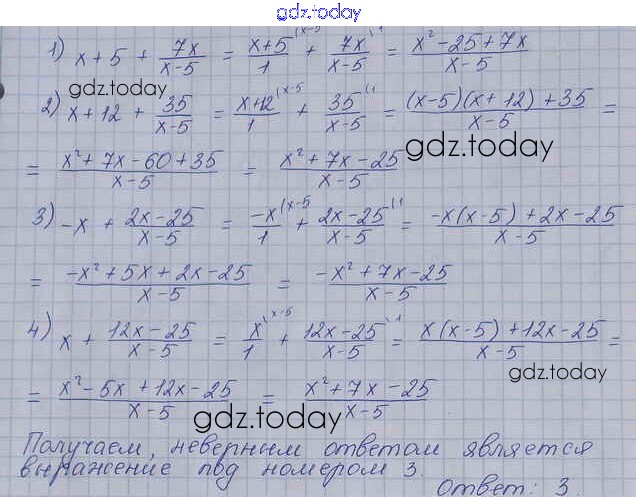 gdz.today
1) x+5 + 7x/(x-5) = (x+5)/1 (x-5 + 7x/(x-5) (1 = (x²-25+7x)/(x-5)
gdz.today
2) x+12 + 35/(x-5) = (x+12)/1 (x-5 + 35/(x-5) (1 = ((x-5)(x+12)+35)/(x-5) =
gdz.today
= (x²+7x-60+35)/(x-5) = (x²+7x-25)/(x-5)
3) -x + (2x-25)/(x-5) = -x/1 (x-5 + (2x-25)/(x-5) (1 = (-x(x-5)+2x-25)/(x-5)
= (-x²+5x+2x-25)/(x-5) = (-x²+7x-25)/(x-5)
4) x + (12x-25)/(x-5) = x/1 (x-5 + (12x-25)/(x-5) (1 = (x(x-5)+12x-25)/(x-5) =
gdz.today
= (x²-5x+12x-25)/(x-5) = (x²+7x-25)/(x-5)
gdz.today
Получаем, неверным ответом является
выражение под номером 3.
Ответ: 3